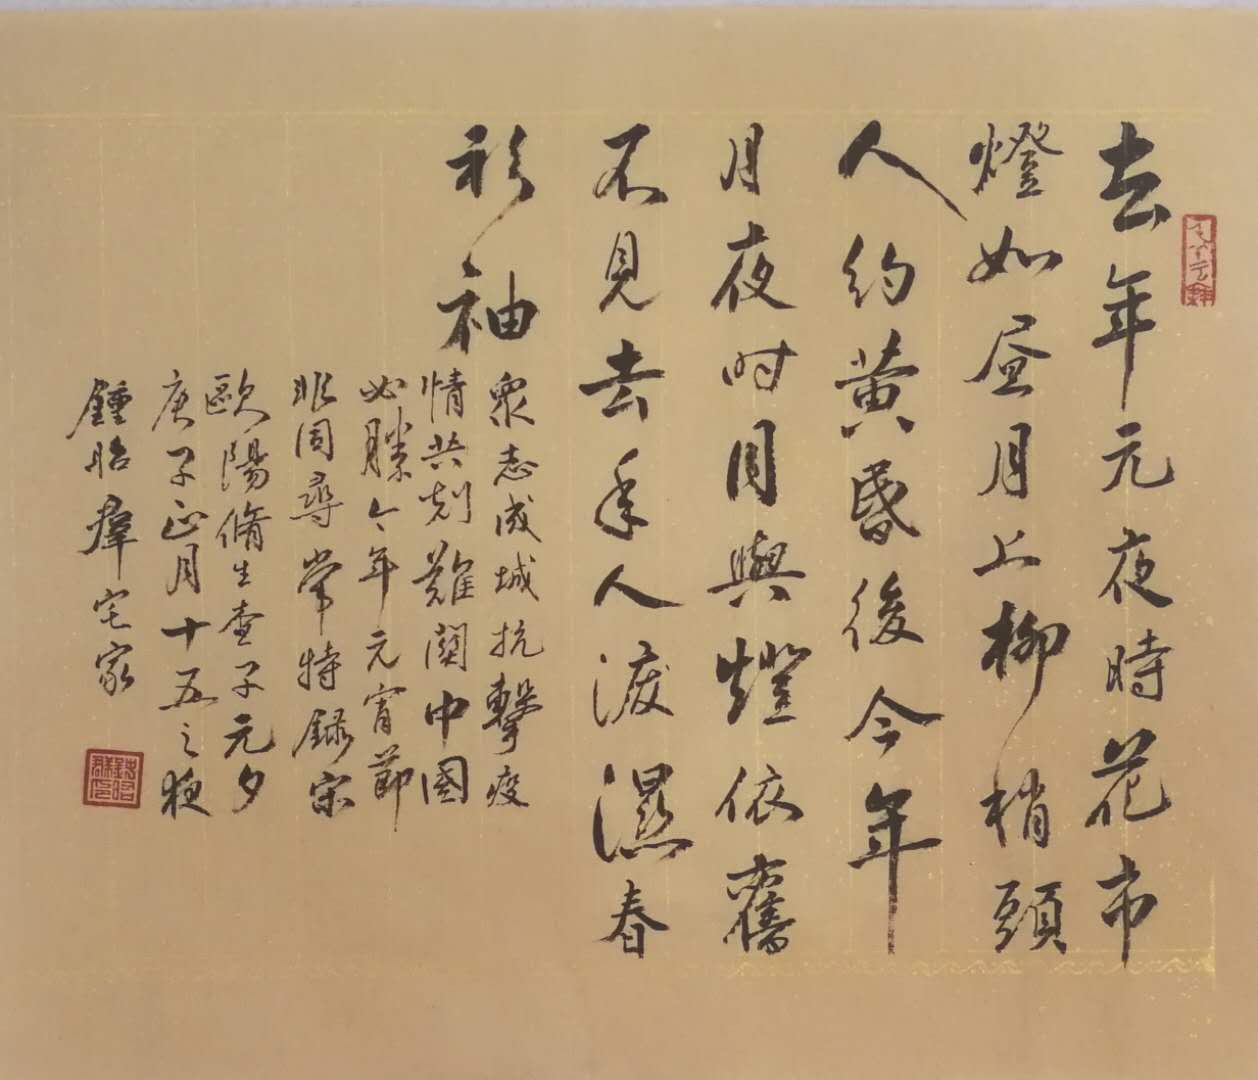 去年元夜時花市
燈如晝月上柳梢頭
人約黄昏後今年
月夜时月與燈依舊
不見去年人淚濕春
衫袖
衆志成城抗擊疫
情共剋難関中國
必勝今年元宵節
非同尋常特録宋
歐陽脩生查子元夕
庚子正月十五之夜
鍾昭群宅家